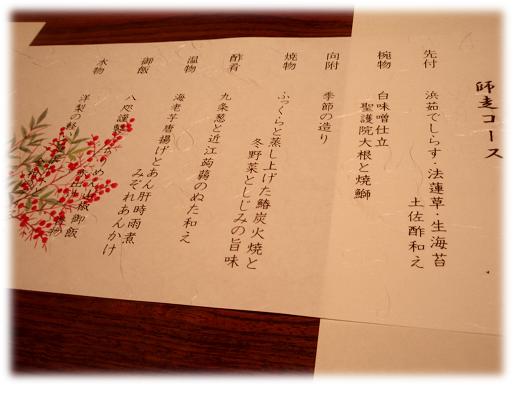 師走コース
先付
浜茹でしらす・法蓮草・生海苔
土佐酢和え
椀物
白味噌仕立
聖護院大根と焼鰤
向附
季節の造り
焼物
ふっくらと蒸し上げた鰆炭火焼と
冬野菜としじみの旨味
酢肴
九条葱と近江蒟蒻のぬた和え
温物
海老芋唐揚げとあん肝時雨煮
みぞれあんかけ
御飯
八咫謹製
御飯
水物
洋梨の